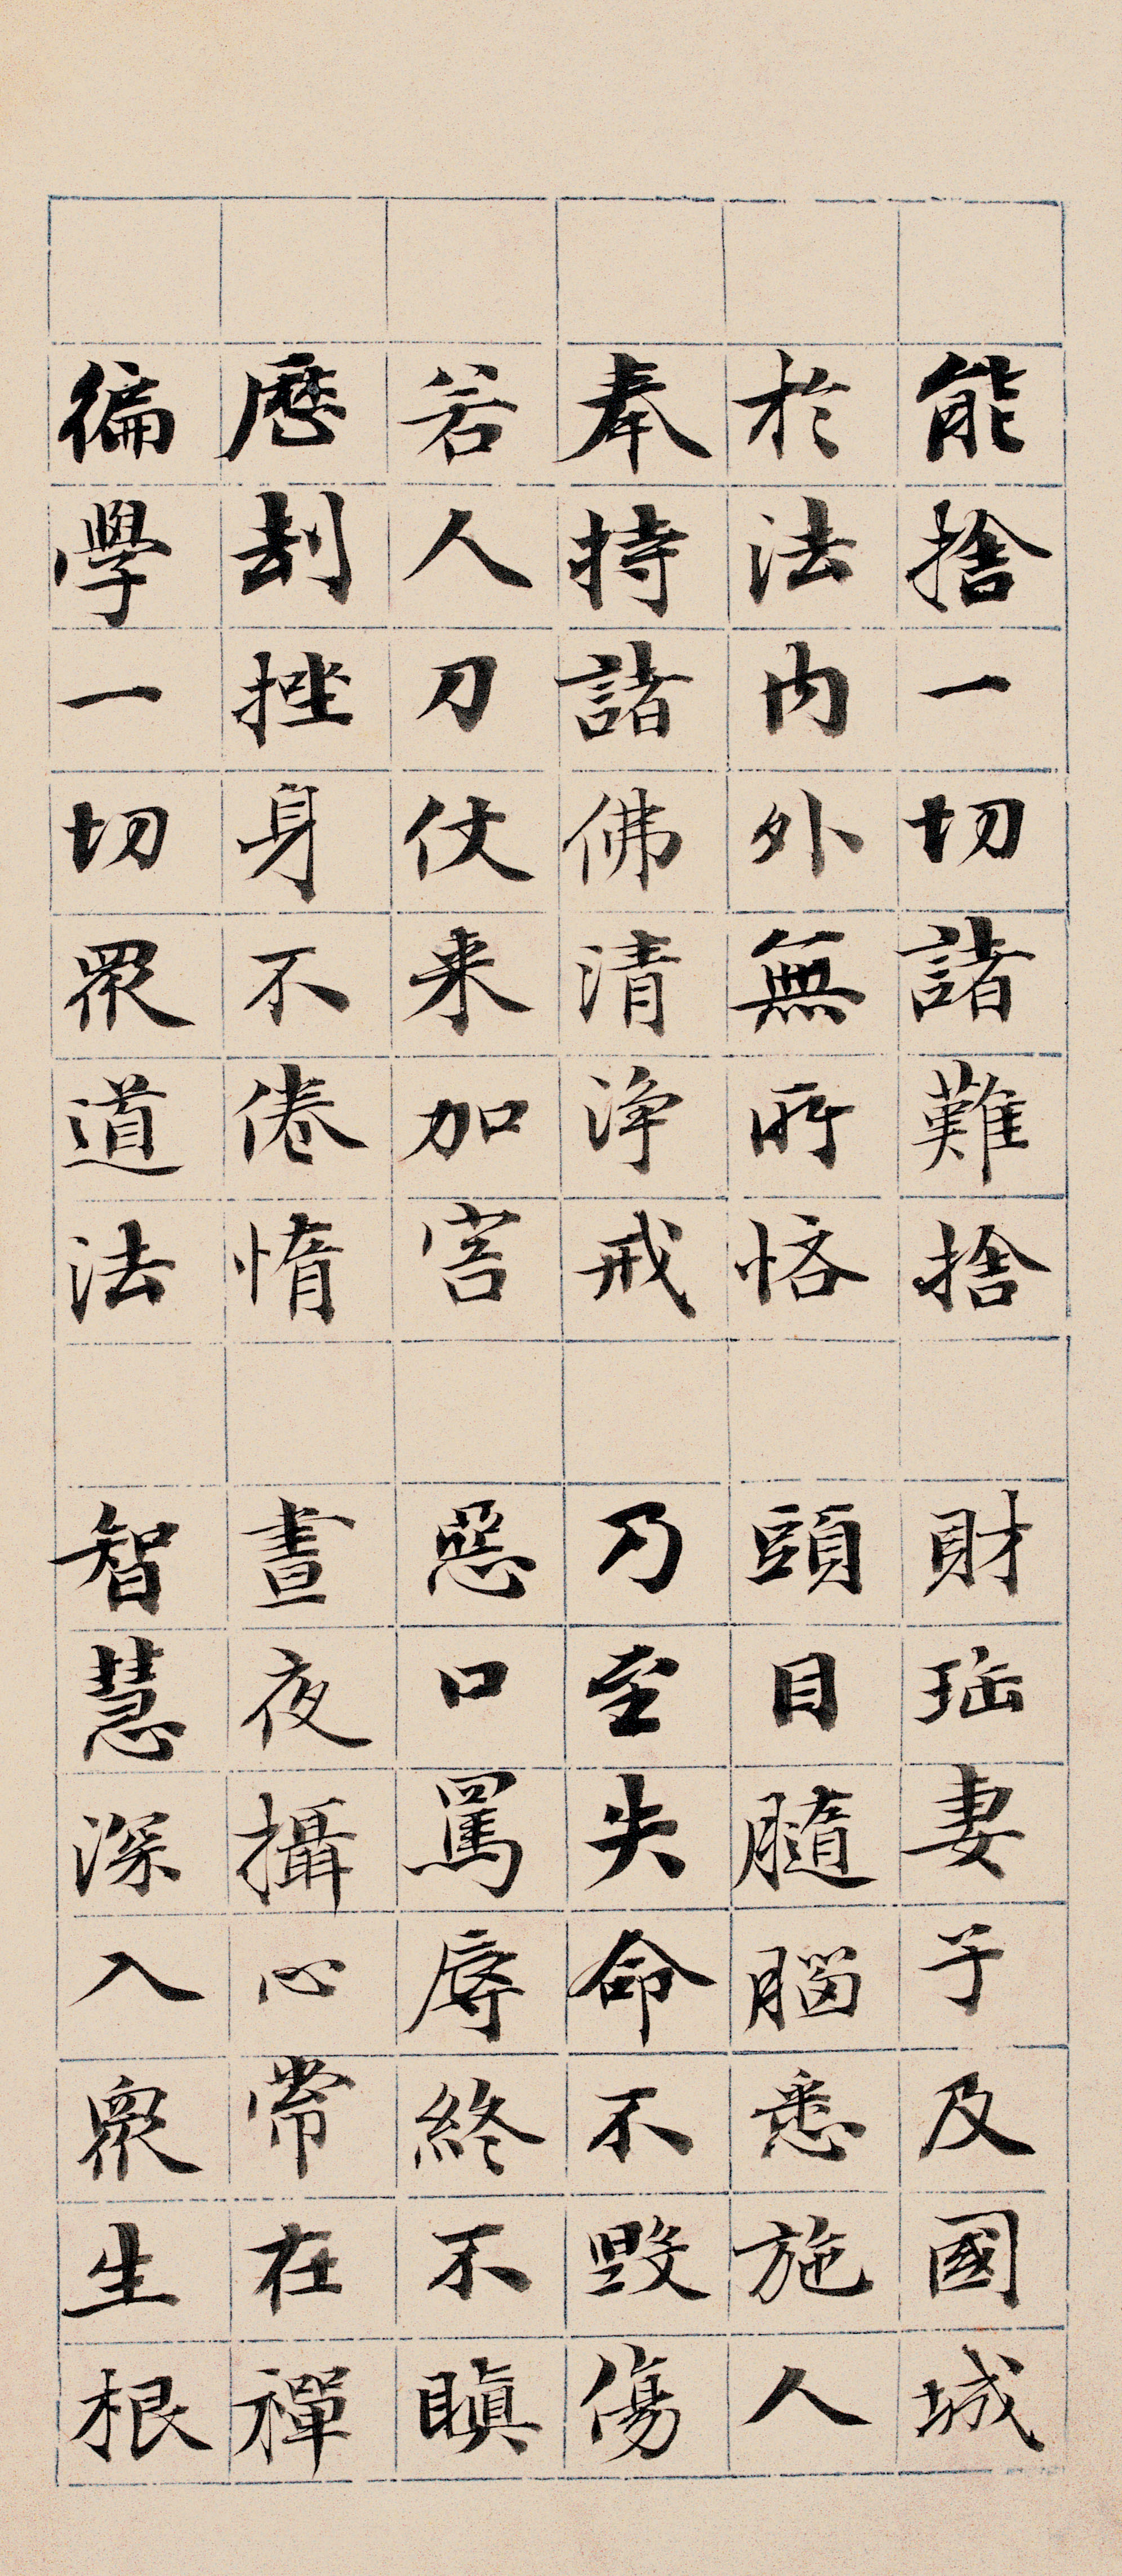 能捨一切諸難捨　財珤妻子及國城
於法內外無所悋　頭目髓腦悉施人
奉持諸佛清淨戒　乃至失命不毀傷
若人刀仗来加害　惡口罵辱終不瞋
歷劫挫身不倦惰　晝夜攝心常在禪
徧學一切眾道法　智慧深入眾生根